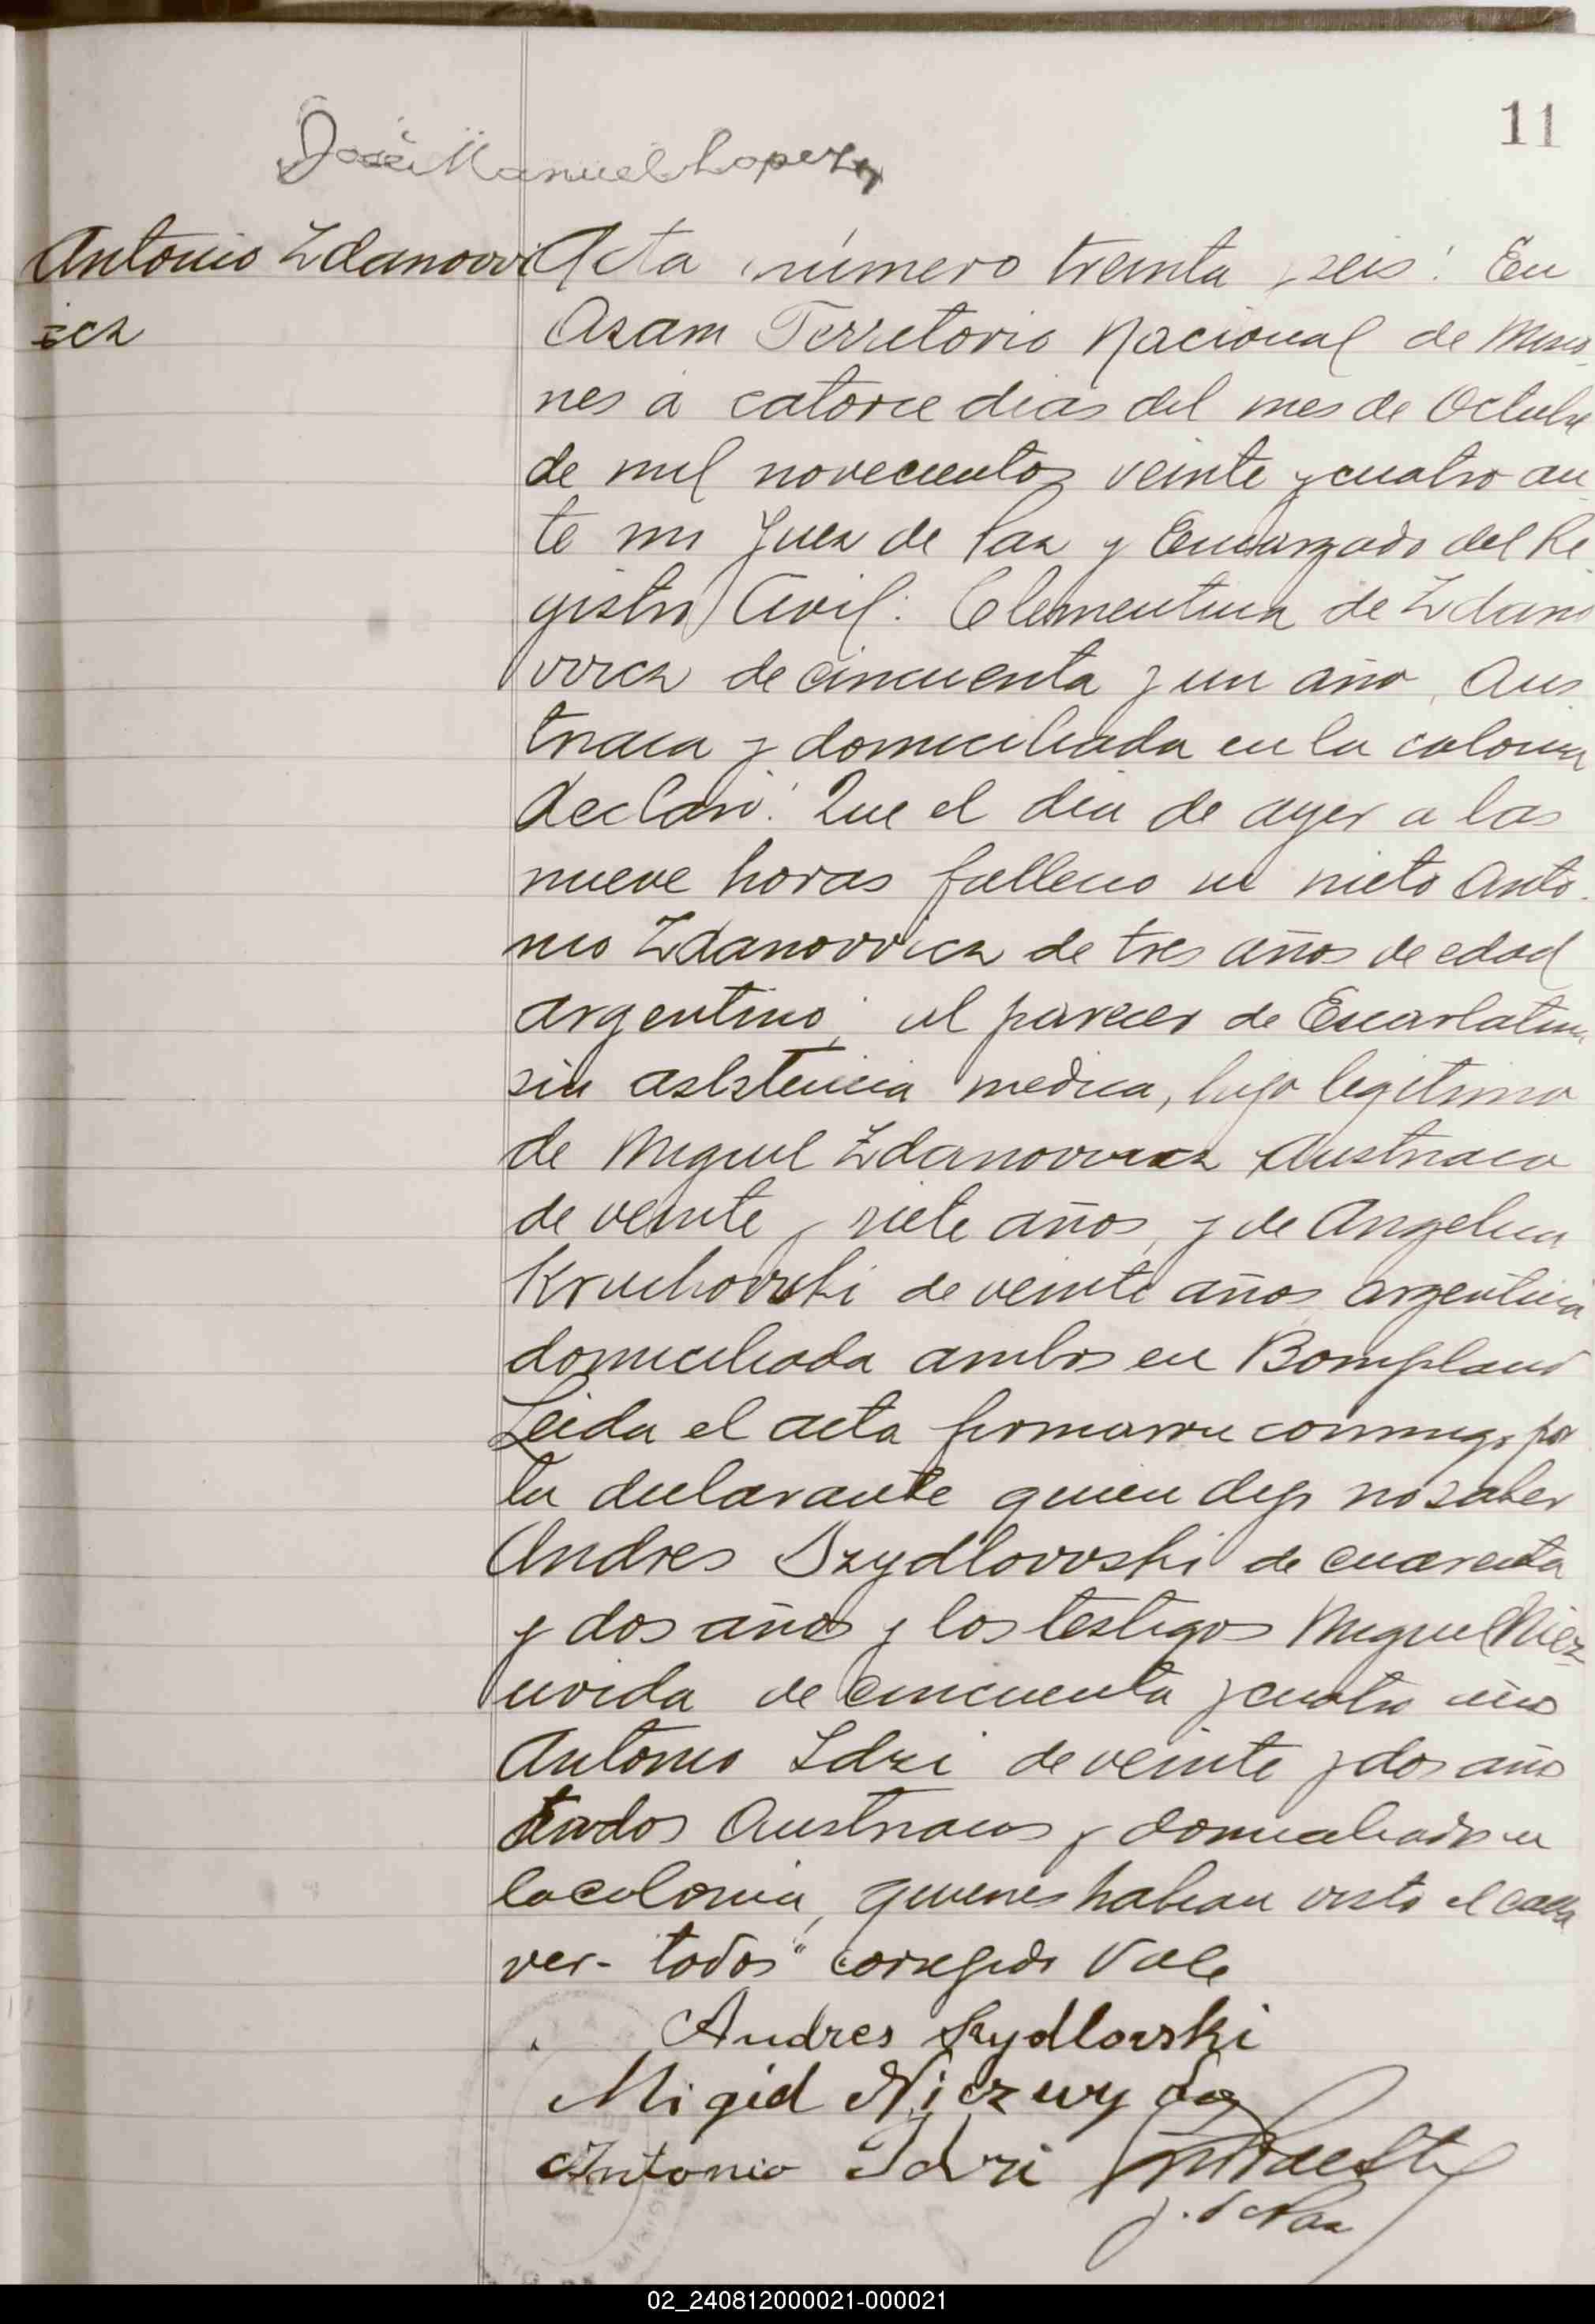 11
José Manuel Lopez
Antonio Zdanovv
icz
Acta número treinta y seis: En
Azam Territorio Nacional de Misio-
nes á catorce dias del mes de Octubre
de mil novecientos veinte y cuatro an-
te mi Juez de Paz y Encargado del Re-
gistro Civil: Clementina de Zdano
vvicz de cincuenta y un año, Aus-
triaca y domiciliada en la colonia
declaró: Que el dia de ayer a las
nueve horas fallecio su nieto Anto-
nio Zdanovvicz de tres años de edad
argentino, al parecer de Escarlatina
sin asistencia medica, hijo legitimo
de Miguel Zdanovvicz Austriaco
de veinte y siete años, y de Angelica
Kruchovski de veinte años argentina
domiciliada ambos en Bompland
Leida el acta firmaron conmigo por
la declarante quien dijo no saber
Andres Szydlovvski de cuarenta
y dos años y los testigos Miguel Niez-
uvida de cincuenta y cuatro años
Antonio Idzi de veinte y dos años
todos Austriacos y domiciliados en
la colonia, quienes habian visto el cada
ver- todos" corregido Vale
Andres Szydlovski
Migid Niezuvyda
Antonio Idzi
J. de Paz
02_240812000021-000021